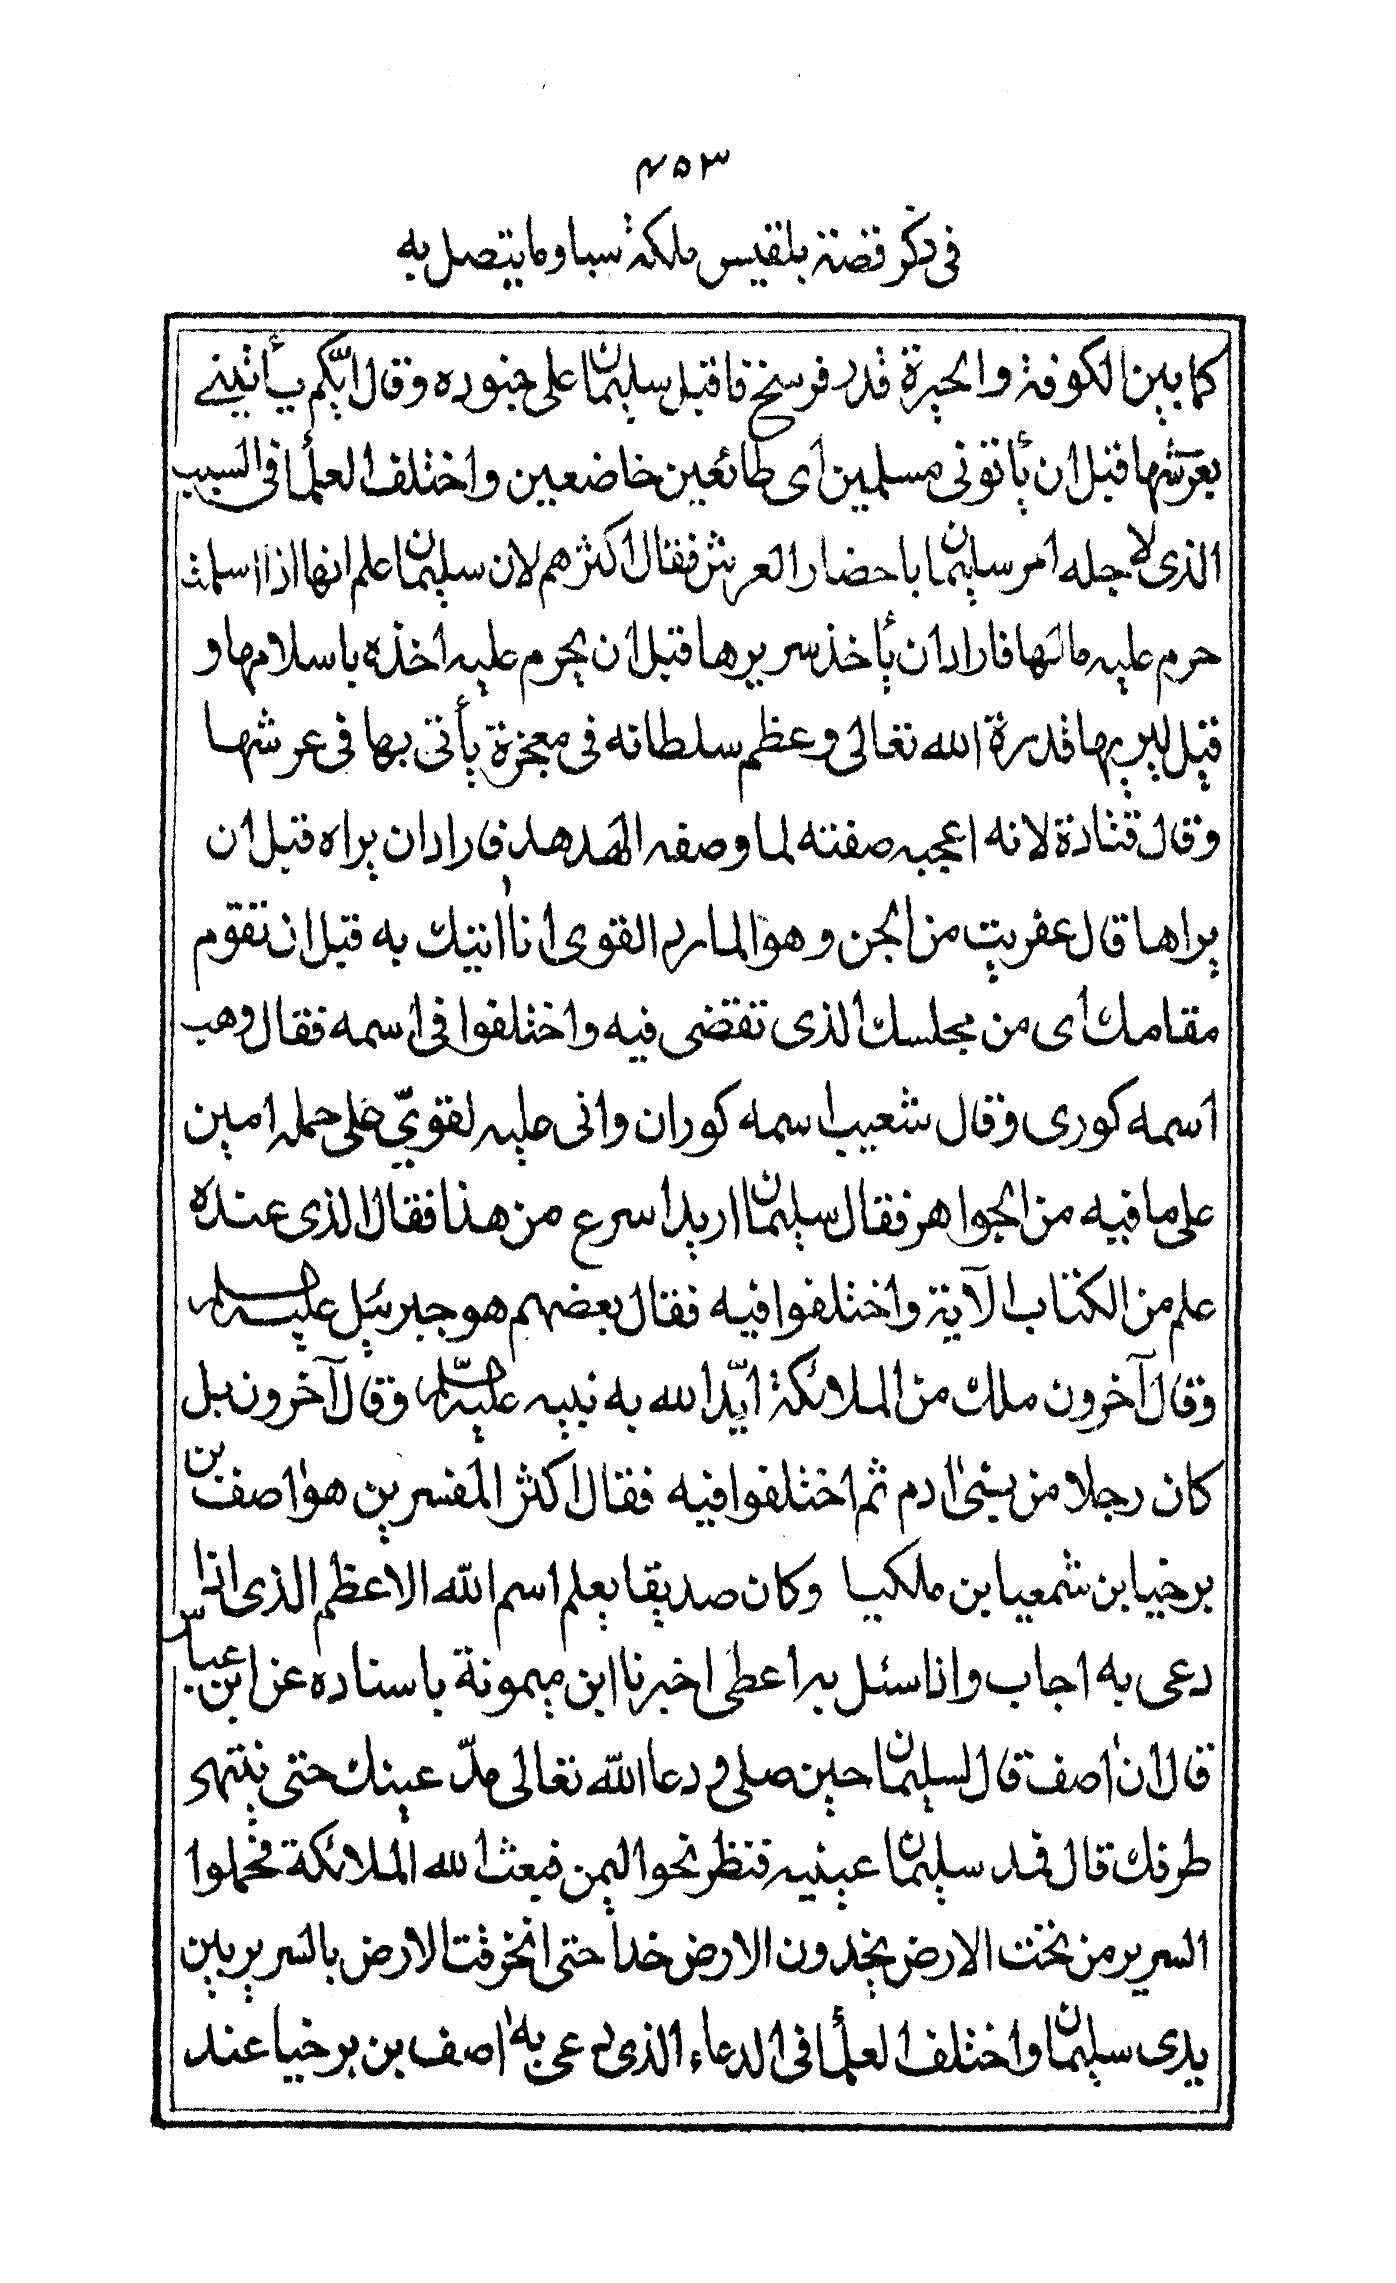 ٤٥٣
في ذكر قصة بلقيس ملكة سبا وما يتصل به
كما بين الكوفة والحيرة قدر فرسخ فاقبل سليمان على جنوده وقال ايّكم يأتيني
بعرشها قبل ان يأتونى مسلمين اى طائعين خاضعين واختلف العلمأ فى السبب
الذى لاجله امر سليمان باحضار العرش فقال اكثرهم لان سليمان علم انها اذا اسلمت
حرم عليه مالها فاراد ان يأخذ سريرها قبل ان يحرم عليه اخذه باسلامها و
قيل ليريها قدرة الله تعالى وعظم سلطانه فى معجزة يأتى بها فى عرشها
وقال قتادة لانه اعجبه صفته لما وصفه الهدهد فاراد ان يراه قبل ان
يراها قال عفريت من الجن وهو المارد القوى انا اتيك به قبل ان تقوم
مقامك اى من مجلسك الذى تقضى فيه واختلفوا فى اسمه فقال وهب
اسمه كورى وقال شعيب اسمه كوران وانى عليه لقويّ على حمله امين
على ما فيه من الجواهر فقال سليمان اريد اسرع من هذا فقال الذى عنده
علم من الكتاب الآية واختلفوا فيه فقال بعضهم هو جبرئيل عليه السلام
وقال آخرون ملك من الملائكة ايّد الله به نبيه عليه السلام وقال آخرون بل
كان رجلا من بنى ادم ثم اختلفوا فيه فقال اكثر المفسرين هو اصف بن
برخيا بن شمعيا بن ملكيا وكان صديقا يعلم اسم الله الاعظم الذى اذا
دعى به اجاب واذا سئل به اعطى اخبرنا ابن ميمونة باسناده عن ابن عباس
قال ان اصف قال لسليمان حين صلى ودعا الله تعالى مدّ عينك حتى ينتهى
طرفك قال فمد سليمان عينيه فنظر نحو اليمن فبعث الله الملائكة فحملوا
السرير من تحت الارض يخدون الارض خدا حتى انخرقت الارض بالسرير بين
يدى سليمان واختلف العلمأ فى الدعاء الذى دعى به اصف بن برخيا عند